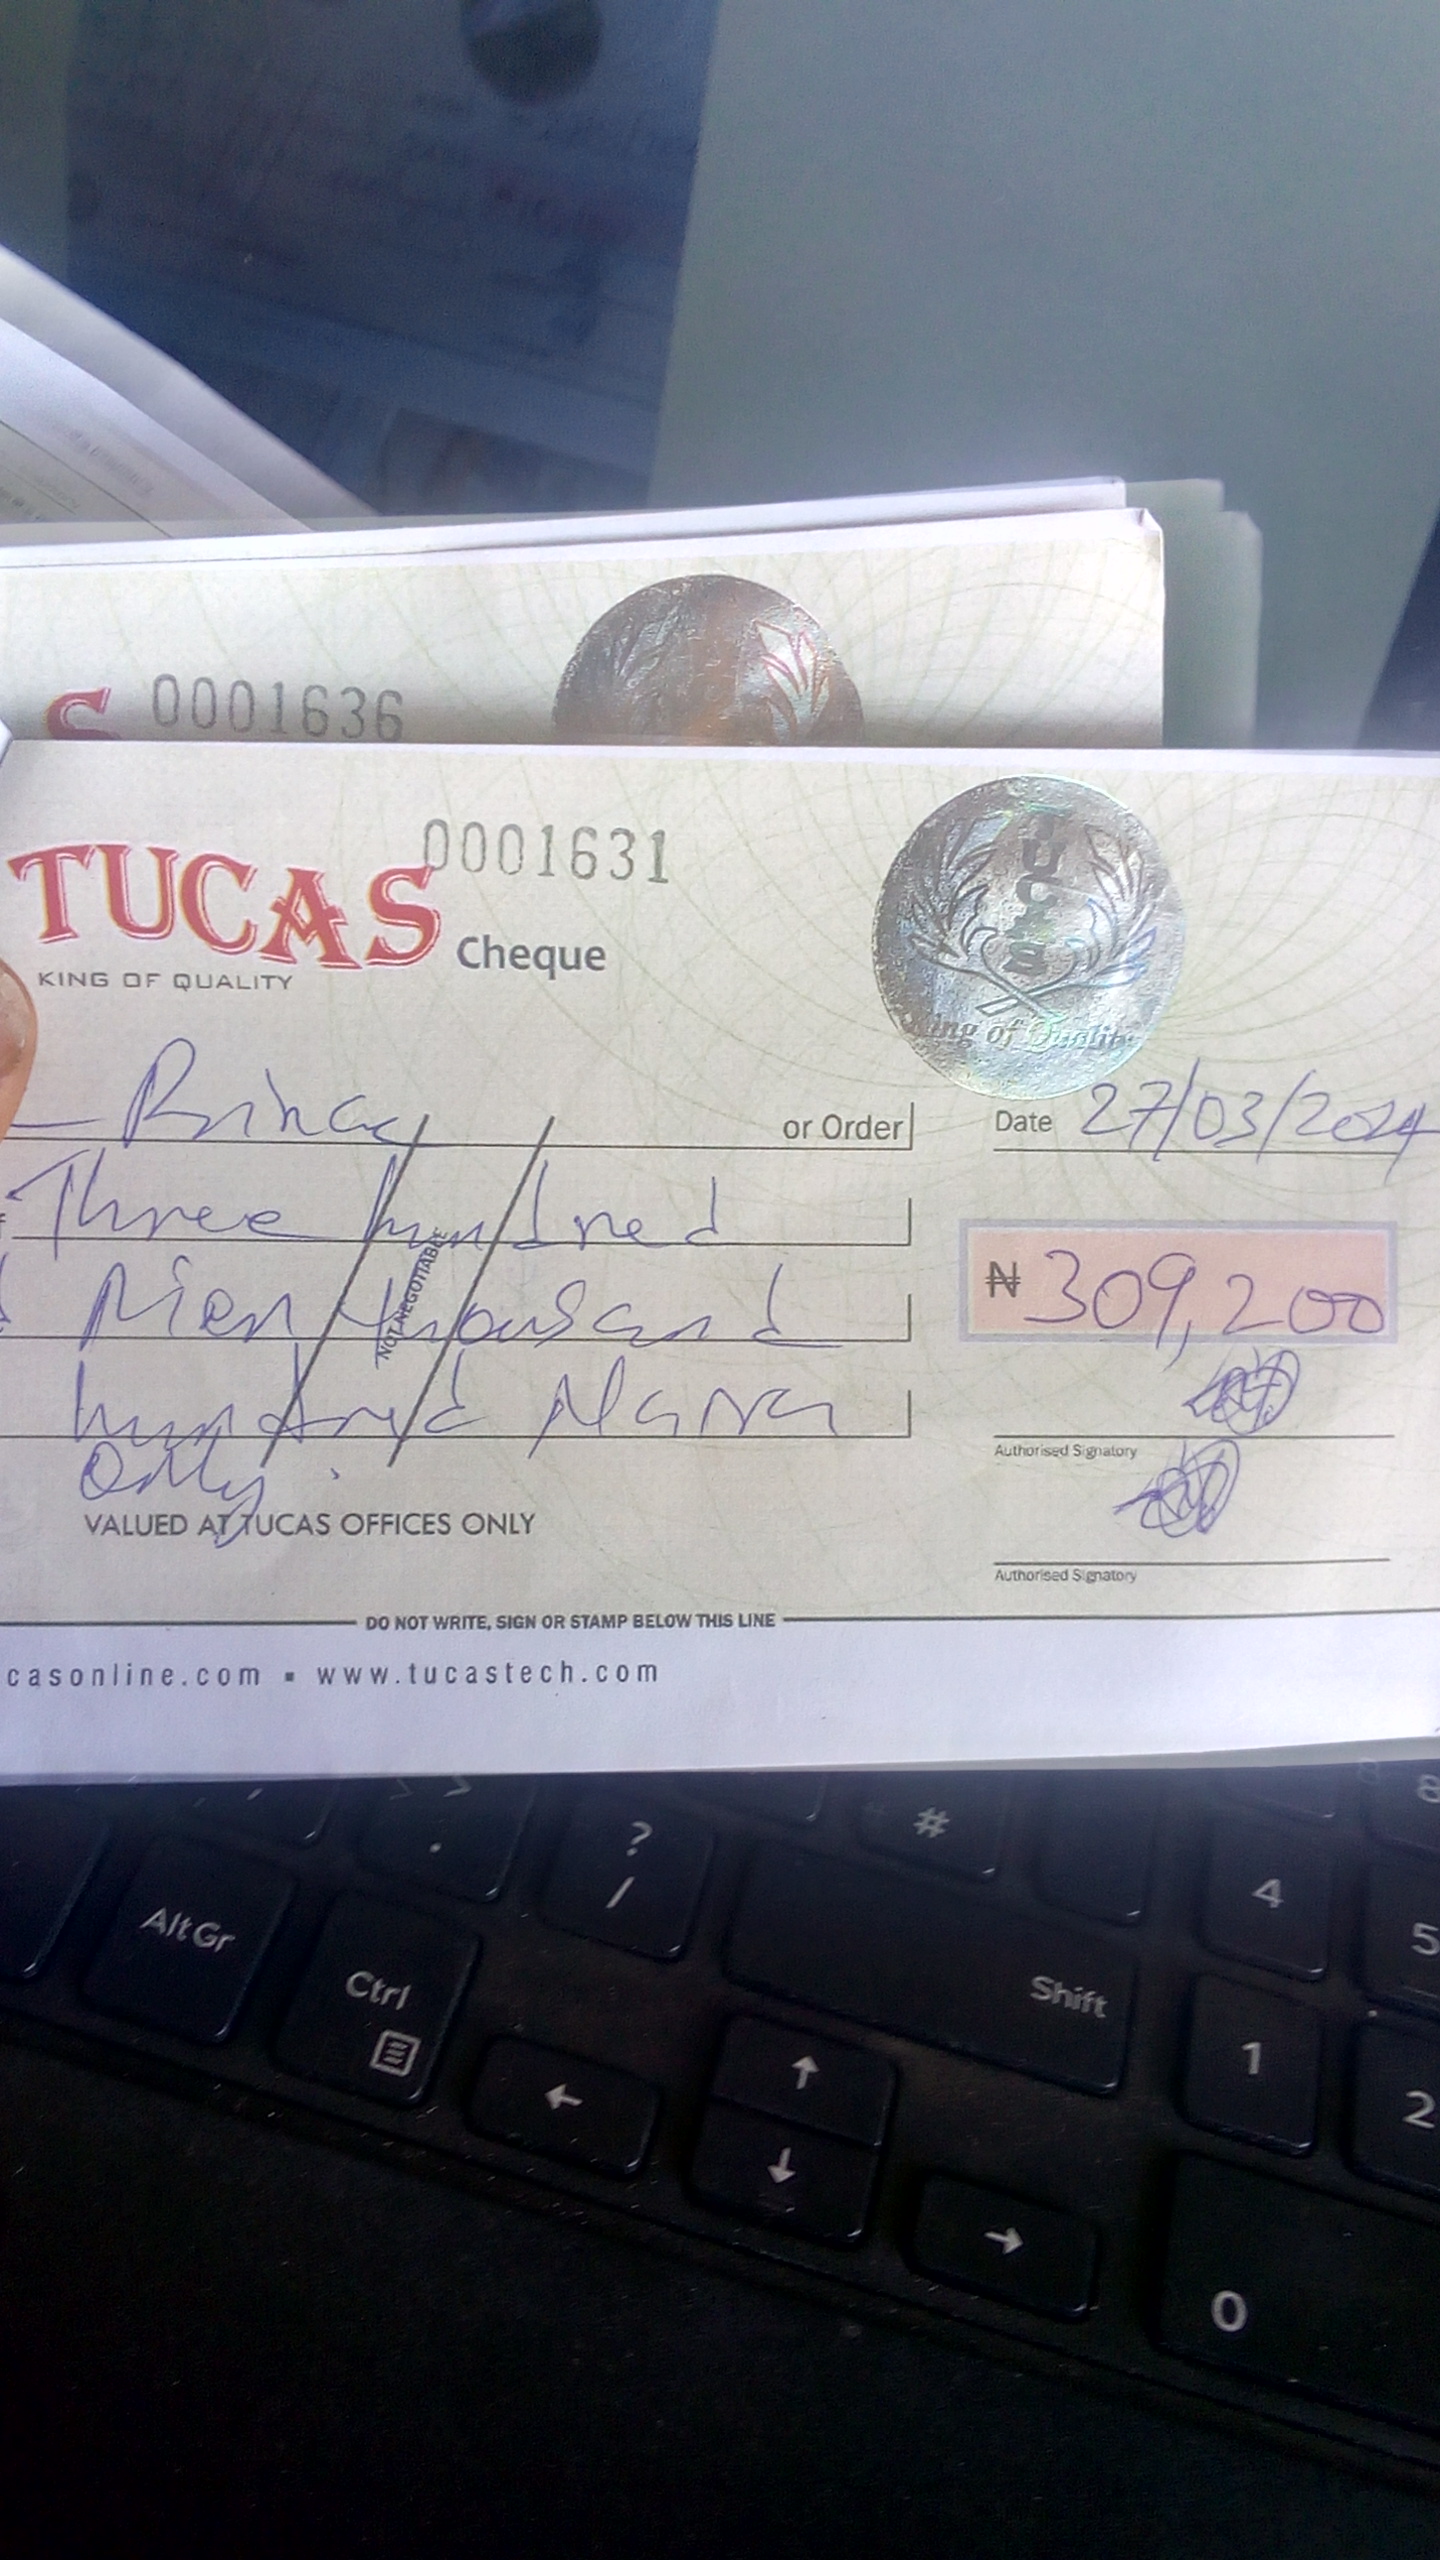 S 0001636
TUCAS 0001631
Cheque
KING OF QUALITY
TUCAS
King of Quality
or Order
Date 27/03/2024
Three hundred
Nien thousand
NOT NEGOTIABLE
₦ 309,200
hundred Naira
Only.
Authorised Signatory
VALUED AT TUCAS OFFICES ONLY
Authorised Signatory
DO NOT WRITE, SIGN OR STAMP BELOW THIS LINE
casonline.com ▪ www.tucastech.com
? # 8
. / 4
AltGr 5
Ctrl Shift
↑ 1
← 2
↓
→
0